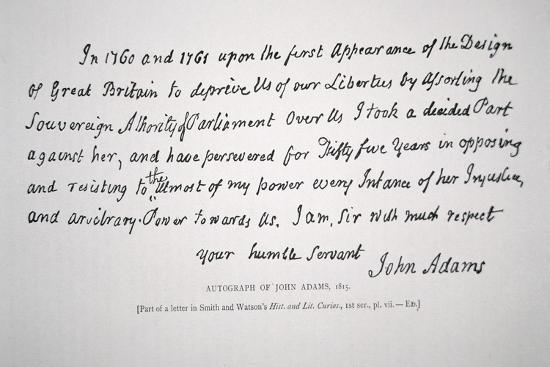 In 1760 and 1761 upon the first Appearance of the Design
of Great Britain to deprive Us of our Liberties by Asserting the
Souvereign Athority of Parliament Over Us I took a decided Part
against her, and have persevered for Fifty five Years in opposing
and resisting to the utmost of my power every Intance of her Injustice,
and arbitrary Power towards Us. I am, Sir with much respect
your humble Servant
John Adams
AUTOGRAPH OF JOHN ADAMS, 1815.
[Part of a letter in Smith and Watson's Hist. and Lit. Curios., 1st ser., pl. vii.—ED.]